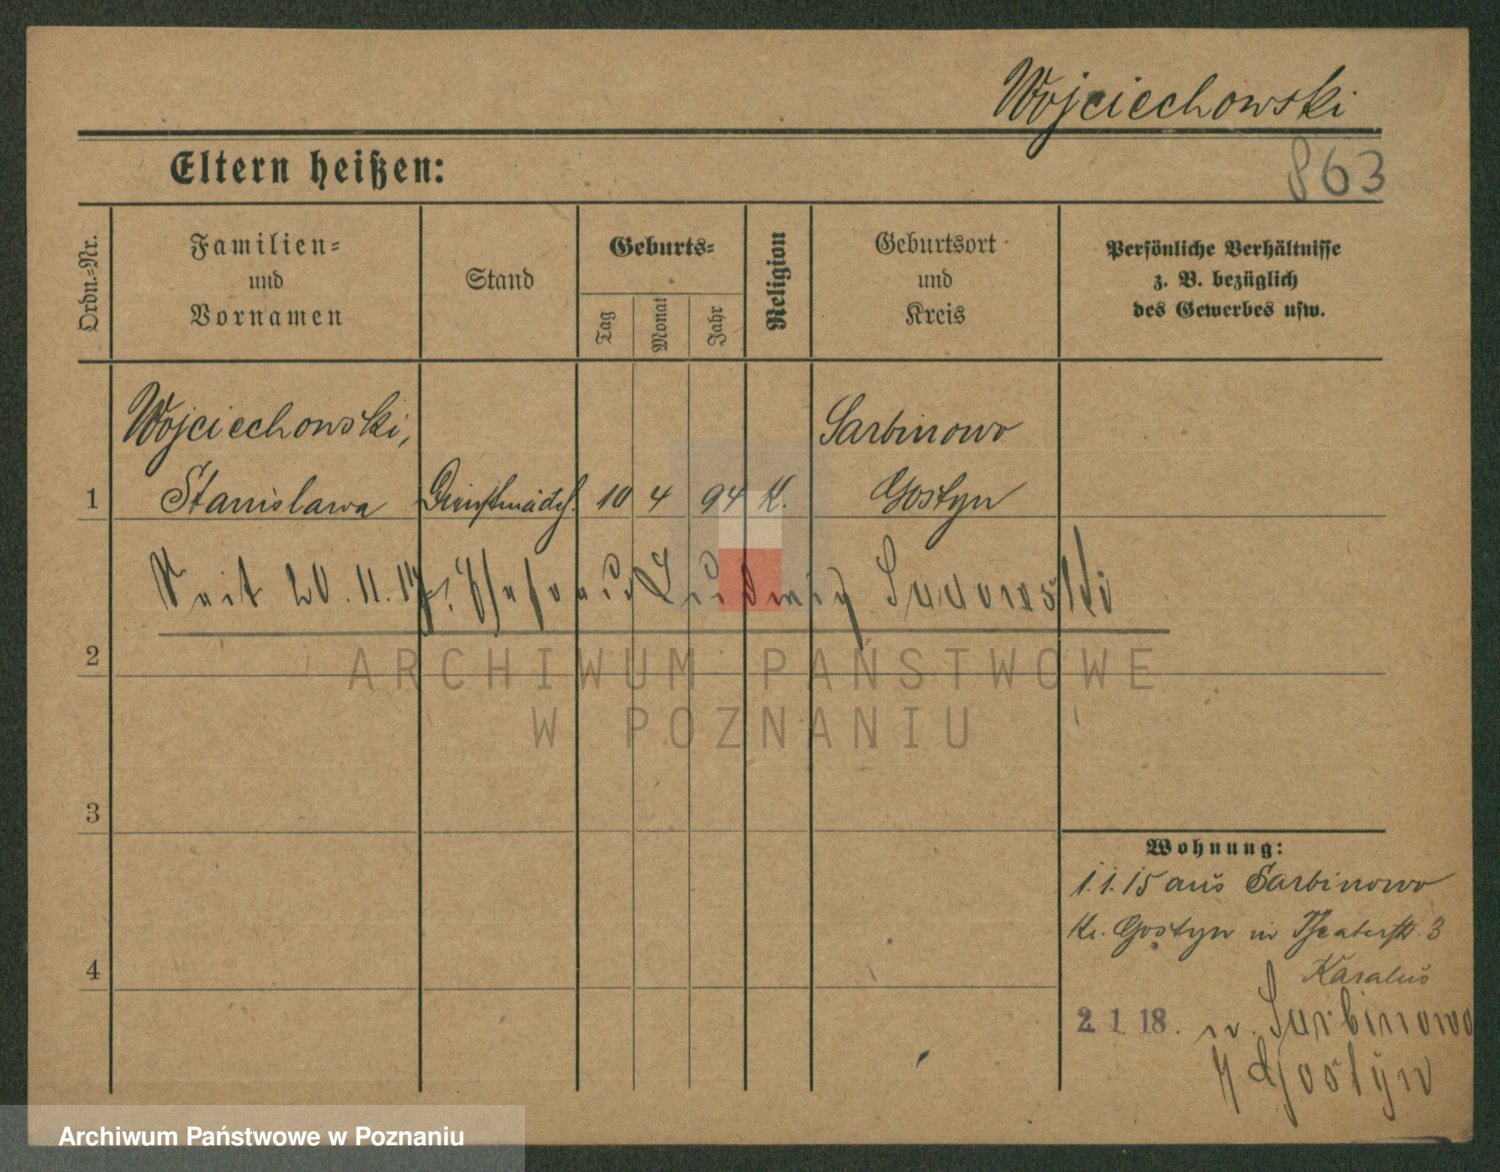 Wojciechowski
863
Eltern heißen:
Ordn.-Nr.
Familien-
und
Vornamen
Stand
Geburts-
Tag
Monat
Jahr
Religion
Geburtsort
und
Kreis
Persönliche Verhältnisse
z. B. bezüglich
des Gewerbes usw.
Wojciechowski,
Sarbinowo
1 Stanislawa Dienstmädch. 10 4 94 K. Gostyn
Seit 20.11.17. Ehefrau Ludwig
2
3
4
ARCHIWUM PAŃSTWOWE
W POZNANIU
Wohnung:
1.1.15 aus Sarbinowo
Kr. Gostyn in Theaterstr. 3
2.1.18. n. Sarbinowo
Gostyn
Archiwum Państwowe w Poznaniu